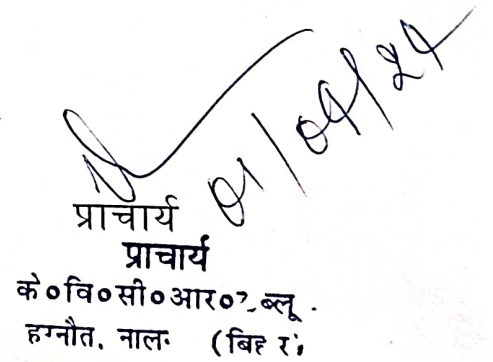 01/04/24
प्राचार्य
प्राचार्य
के०वि०सी०आर०?-ब्लू.
हग्नौत, नाल (बिह र)